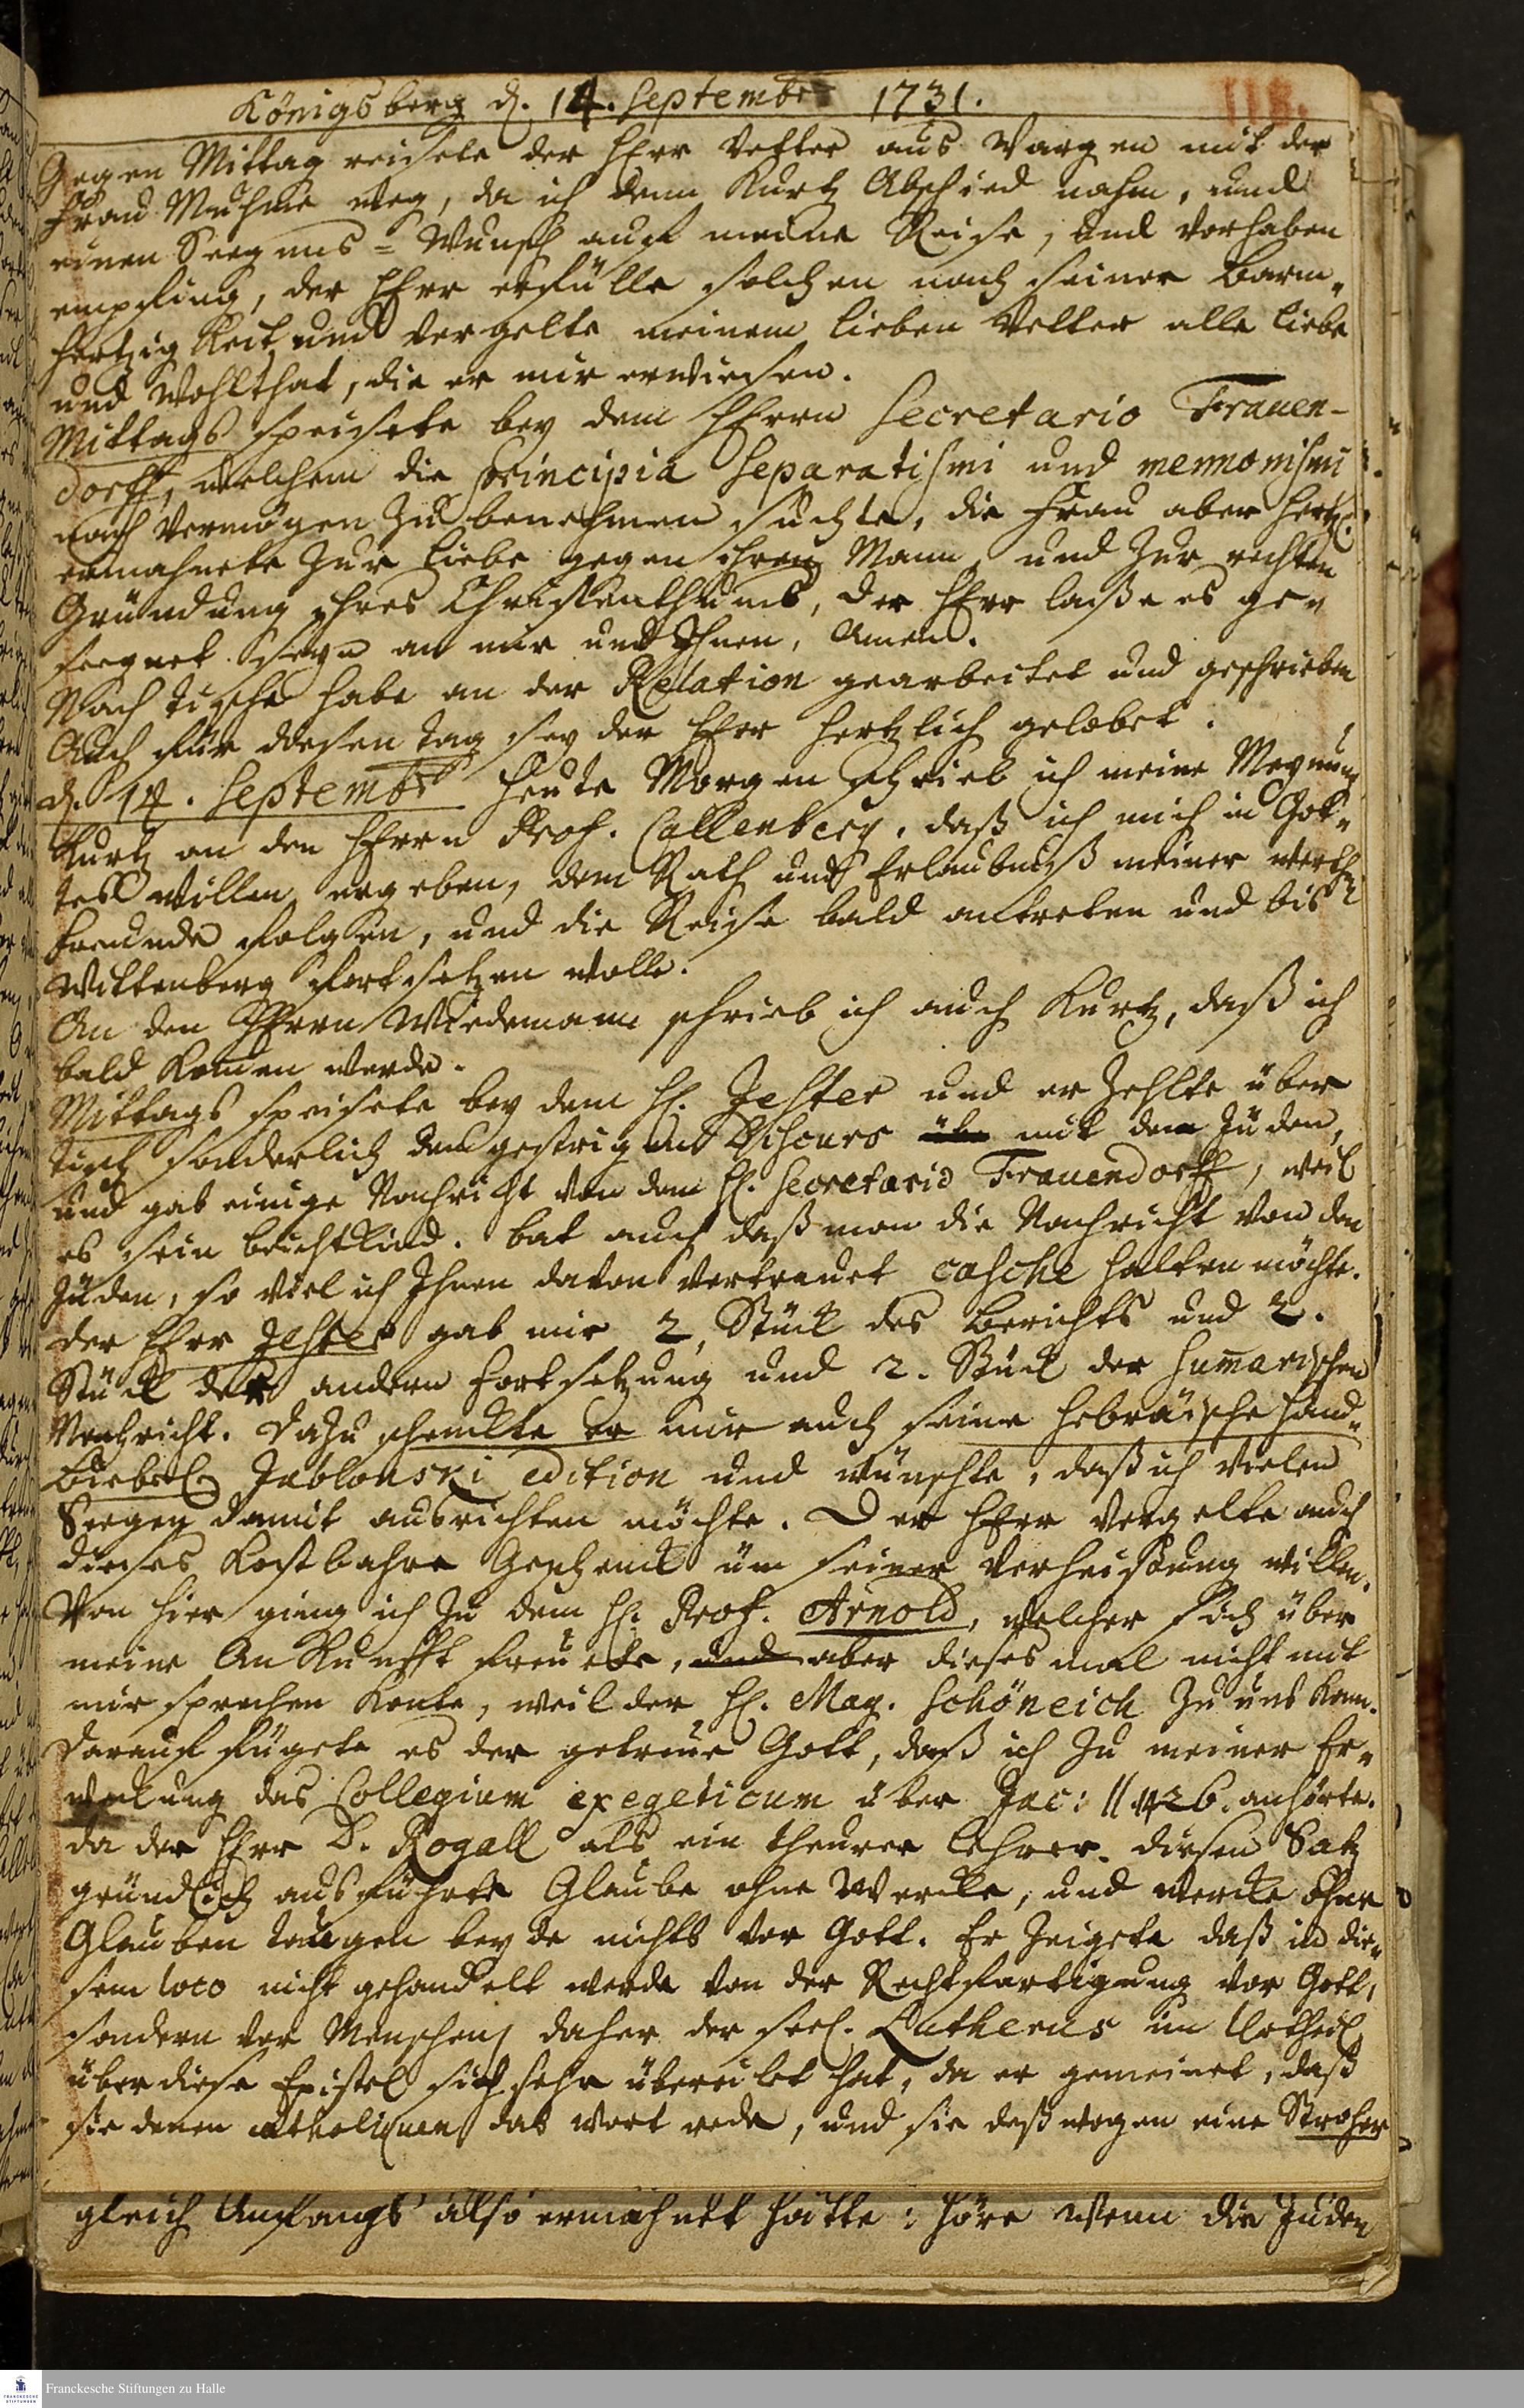 Königsberg d. 14. Septembr 1731.
118.
Gegen Mittag reisete der HErr Vetter aus Wargen mit der
Frau Muhme weg, da ich denn Kurtz Abschied nahm, und
einen Seegens=Wunsch auf meine Reise, und Vorhaben
empfing, der HErr erfülle solchen nach seiner Barm-
hertzigKeit und vergelte meinem lieben Vetter alle Liebe
und Wohlthat, die er mir erwiesen.
Mittags speisete bey dem HErrn Secretario Frauen-
dorff, welchem die principia Separatismi und mennonismi
nach Vermögen zu benehmen suchte, die Frau aber hertzl.
ermahnete zur Liebe gegen ihren Mann, und zur rechten
Gründung ihres Christenthums, der HErr laße es ge-
seegnet seyn an mir und Ihnen, Amen.
Nach Tische habe an der Relation gearbeitet und geschrieben
Auch für diesen Tag sey der HErr hertzlich gelobet.
d. 14. Septembr Heute Morgen schrieb ich meine Meynung
Kurtz an den HErrn Prof. Callenberg, daß ich mich in Got-
tes Willen ergeben, dem Rath und Erlaubniß meiner werthen
Freunde folgen, und die Reise bald antreten und bis
Wittenberg fortsetzen wolle.
An den HErrn Wiedemann schrieb ich auch Kurtz, daß ich
bald Komen werde.
Mittags speisete bey dem H. Jester und erzehlte über
Tisch sonderlich den gestrigen Discurs übe mit dem Jüden,
und gab einige Nachricht von dem H. Secretario Frauendorff, weil
es sein Beichtkind. bat auch daß man die Nachricht von den
Jüden, so viel ich Ihnen davon vertrauet casche halten möchte.
der HErr Jester gab mir 2, Stück des Berichts und 2.
Stück der andern Fortsetzung und 2. Stück der Sumarischen
Nachricht. Dazu schenckte er mir auch seine Hebräische Hand-
Biebel Jablonski edition und wünschte, daß ich vielen
Seegen damit ausrichten möchte. Der HErr vergelte auch
dieses Kostbahre Geschenck üm seiner Verheissung willen.
Von hier ging ich zu dem H. Prof. Arnold, welcher sich über
meine AnKunfft freuete, und aber dieses mal nicht mit
mir sprechen Konte, weil der H. Mag. Schöneich zu uns kam.
Darauf fügete es der getreue Gott, daß ich zu meiner Er-
weckung das Collegium exegeticum über Jac: II 426. anhörte.
da der HErr D. Rogall als ein theurer Lehrer. diesen Satz
gründlich ausführete Glaube ohne Wercke, und Wercke ohne
Glauben taugen beyde nichts vor Gott. Er zeigete daß in die-
sem loco nicht gehandelt werde von der Rechtfertigung vor Gott,
sondern vor Menschen, daher der seel. Lutherus im Urtheil
über diese Epistel sich sehr übereilet hat, da er gemeinet, daß
sie denen catholiquen das Wort rede, und sie deßwegen eine Stroher
gleich Anfangs also ermahnet hätte: höre wenn die Juden
Franckesche Stiftungen zu Halle